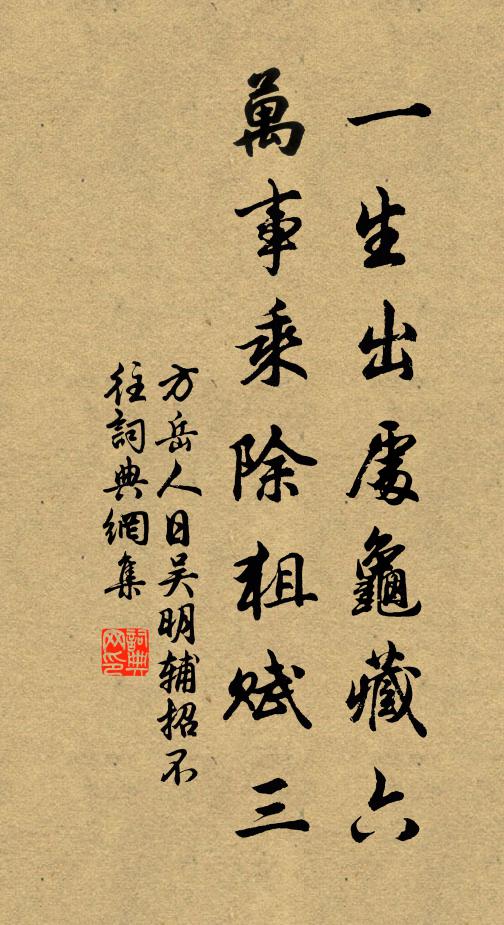 一生出處龜藏六
萬事乘除狙賦三
方岳人日吴明辅招不
往詞典網集
詞典网印